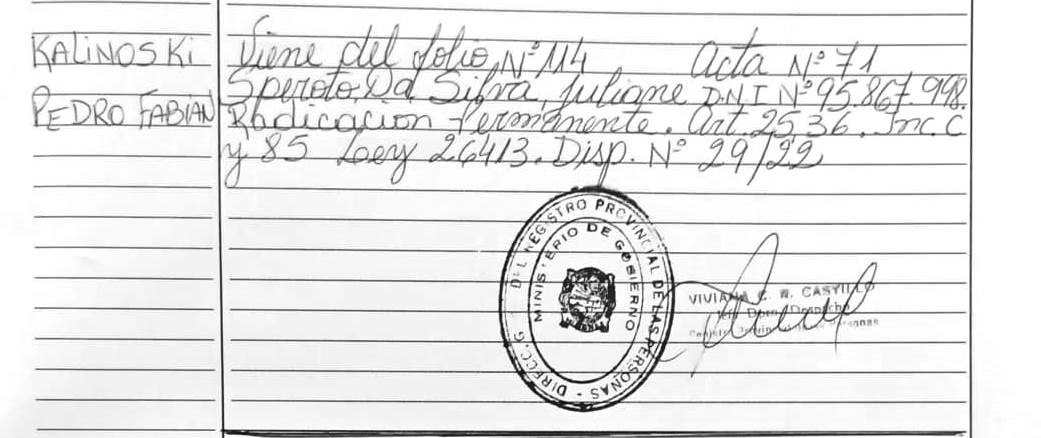 KALINOSKI
PEDRO FABIAN
Viene del folio Nº 114 Acta Nº 71
Speroto Da Silva, Juliane D.N.I Nº 95.867.998.
Radicacion Permanente. Art. 25,36. Inc. C
y 85 Ley 26413. Disp. Nº 29/22
DIRECC. G DEL REGISTRO PROVINCIAL DE LAS PERSONAS -
MINISTERIO DE GOBIERNO
VIVIANA C. W. CASTILLO
Jefe Dpto. Despacho
Personas